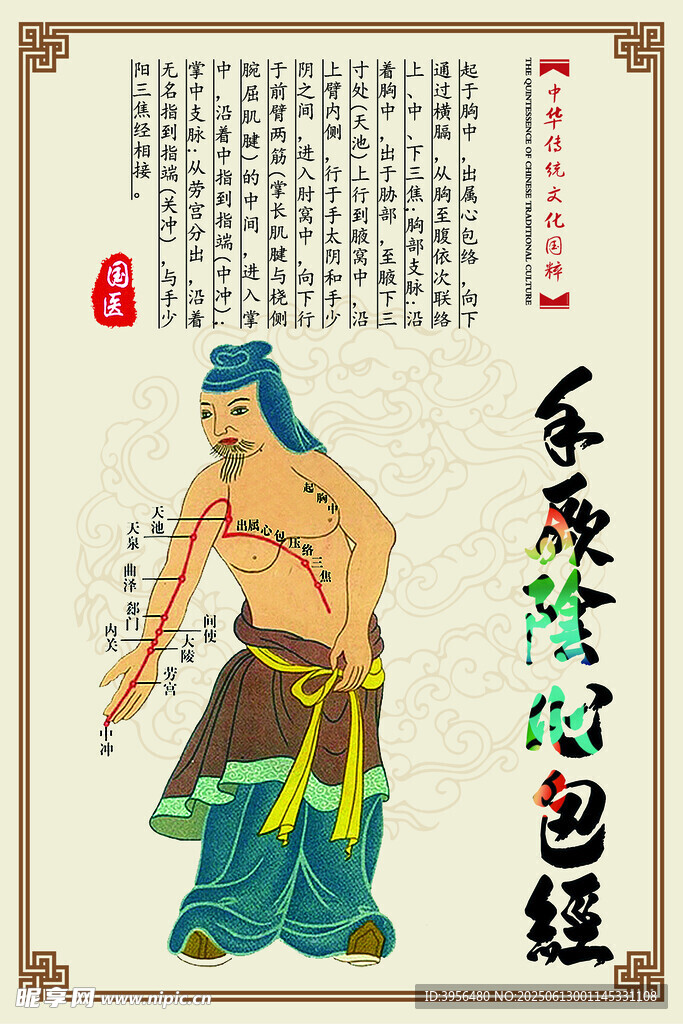 中华传统文化国粹
THE QUINTESSENCE OF CHINESE TRADITIONAL CULTURE
起于胸中，出属心包络，向下
通过横膈，从胸至腹依次联络
上、中、下三焦；胸部支脉：沿
着胸中，出于胁部，至腋下三
寸处(天池)上行到腋窝中，沿
上臂内侧，行于手太阴和手少
阴之间，进入肘窝中，向下行
于前臂两筋(掌长肌腱与桡侧
腕屈肌腱)的中间，进入掌
中，沿着中指到指端(中冲)；
掌中支脉：从劳宫分出，沿着
无名指到指端(关冲)，与手少
阳三焦经相接。
国医
手厥陰心包經
起胸中
出属心包压络三焦
天池
天泉
曲泽
郄门
间使
内关
大陵
劳宫
中冲
昵享网 www.nipic.cn
ID:3956480 NO:20250613001145331108